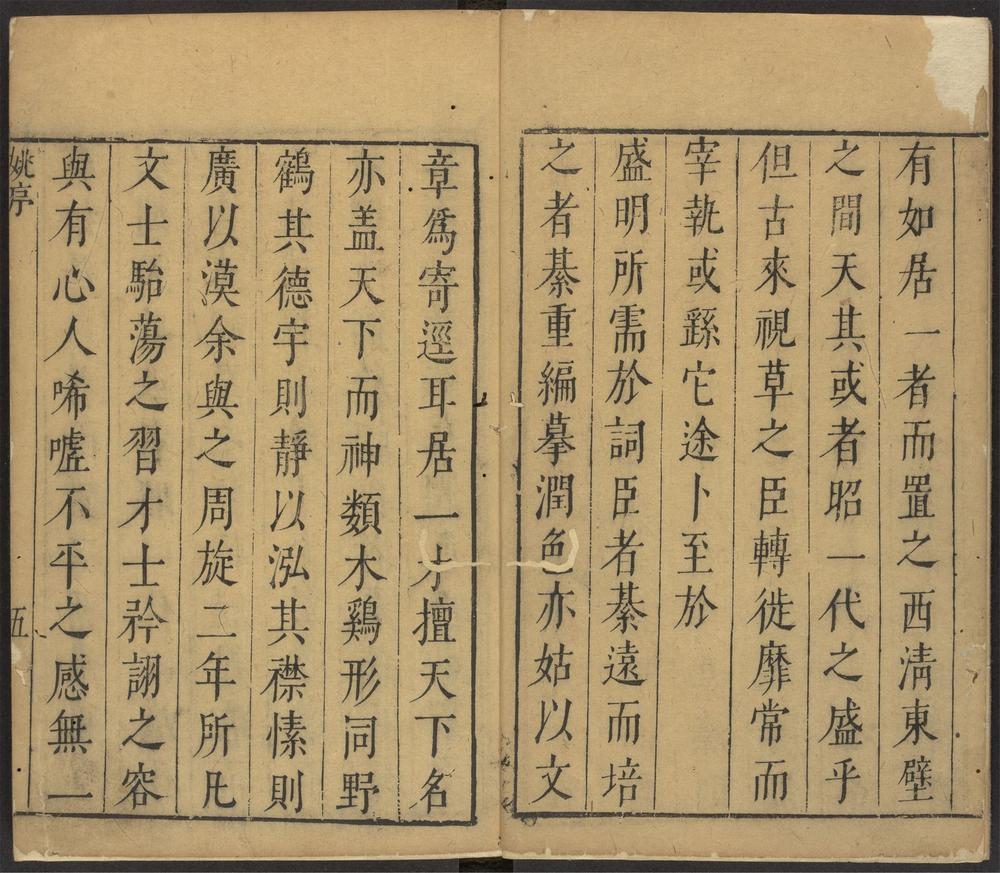 有如居一者而置之西淸東壁
之間天其或者昭一代之盛乎
但古來視草之臣轉徙靡常而
宰執或繇它途卜至於
盛明所需於詞臣者綦遠而培
之者綦重編摹潤色亦姑以文
章爲寄逕耳居一才擅天下名
亦盖天下而神類木鷄形同野
鶴其德宇則靜以泓其襟愫則
廣以漠余與之周旋二年所凡
文士駘蕩之習才士矜詡之容
與有心人唏噓不平之感無一
姚序
五